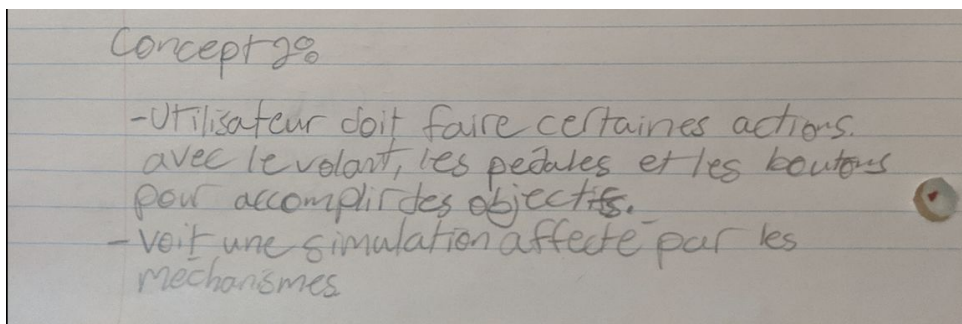 Concept 2:
-Utilisateur doit faire certaines actions.
avec le volant, les pédales et les boutons
pour accomplir des objectifs.
- voit une simulation affecté par les
méchanismes